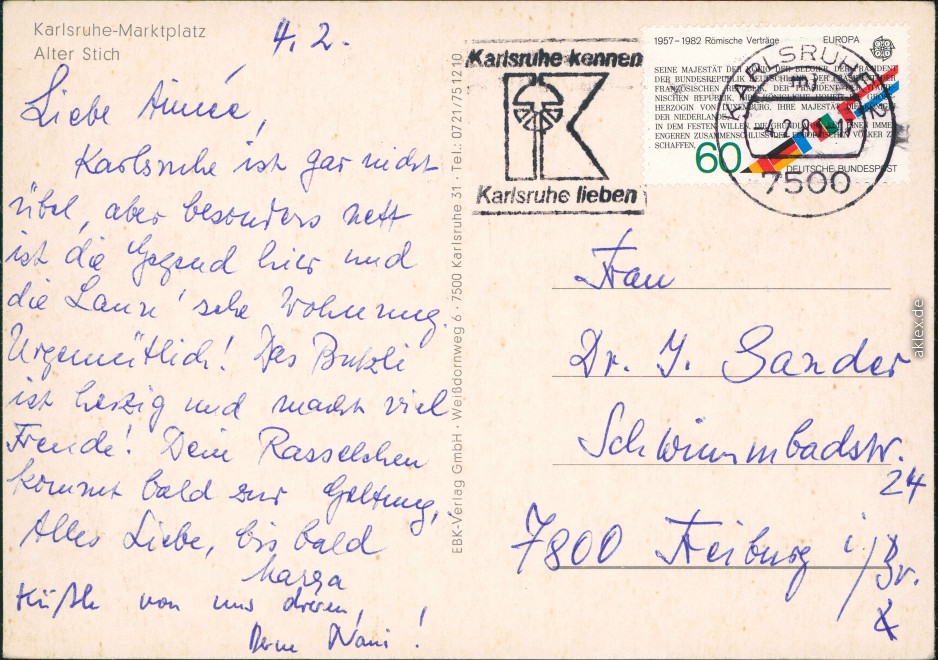 Karlsruhe-Marktplatz
Alter Stich
4.2.
Liebe Aimée,
Karlsruhe ist gar nicht
übel, aber besonders nett
ist die Gegend hier und
die Laun'sche Wohnung.
Urgemütlich! Das Butzli
ist herzig und macht viel
Freude! Dein Rasselchen
kommt bald zur Geltung,
Alles Liebe, bis bald
Marga
Küßle von uns dreien,
Deine Nani!
EBK-Verlag GmbH · Weißdornweg 6 · 7500 Karlsruhe 31 · Tel.: 0721/751210
Karlsruhe kennen
Karlsruhe lieben
1957–1982 Römische Verträge EUROPA
SEINE MAJESTÄT DER KÖNIG DER BELGIER, DER PRÄSIDENT
DER BUNDESREPUBLIK DEUTSCHLAND, DER PRÄSIDENT DER
FRANZÖSISCHEN REPUBLIK, DER PRÄSIDENT DER ITALIE-
NISCHEN REPUBLIK, IHRE KÖNIGLICHE HOHEIT DIE GROSS-
HERZOGIN VON LUXEMBURG, IHRE MAJESTÄT DIE KÖNIGIN
DER NIEDERLANDE,
IN DEM FESTEN WILLEN, DIE GRUNDLAGEN FÜR EINEN IMMER
ENGEREN ZUSAMMENSCHLUSS DER EUROPÄISCHEN VÖLKER ZU
SCHAFFEN,
60
DEUTSCHE BUNDESPOST
KARLSRUHE
7500
Frau
Dr. I. Sander
Schwimmbadstr.
24
7800 Freiburg i/Br.
akleX.de